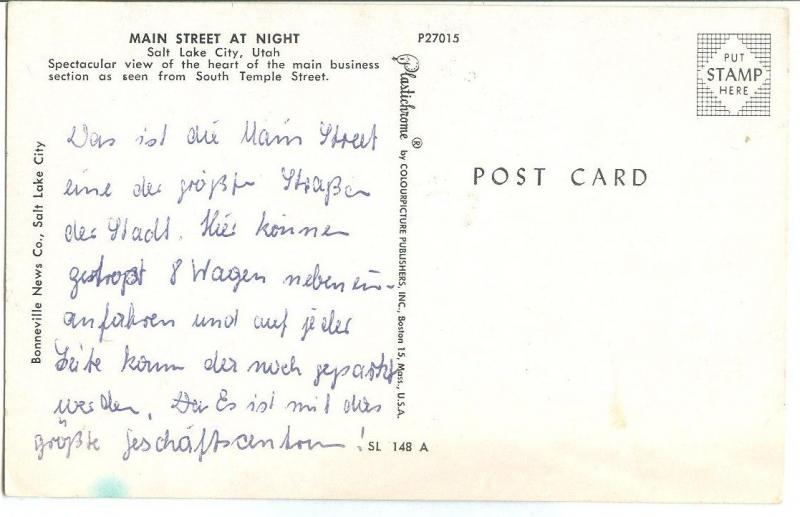 MAIN STREET AT NIGHT
Salt Lake City, Utah
Spectacular view of the heart of the main business
section as seen from South Temple Street.
P27015
PUT
STAMP
HERE
POST CARD
Das ist die Main Street
eine der größten Straßen
der Stadt. Hier können
8 Wagen nebenein-
anfahren und auf jeder
Seite kann der noch geparkt
werden. Da Es ist mit das
größte Geschäftscentrum!
Bonneville News Co., Salt Lake City
Plastichrome ® by COLOURPICTURE PUBLISHERS, INC., Boston 15, Mass., U.S.A.
SL 148 A